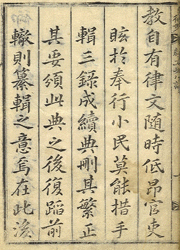 教自有律文隨時低昂官吏
眩於奉行小民莫能措手
輯三錄成續典刪其繁正
其要頒此典之後復蹈前
轍則纂輯之意焉在此後